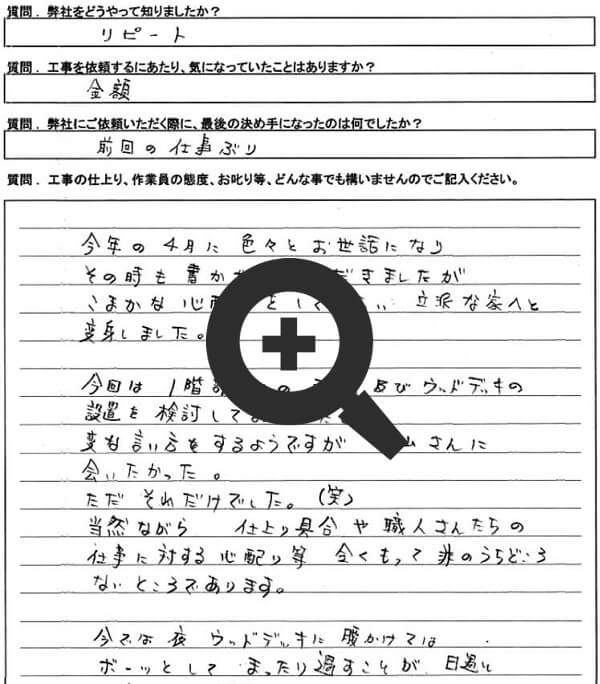 質問．弊社をどうやって知りましたか？
リピート
質問．工事を依頼するにあたり、気になっていたことはありますか？
金額
質問．弊社にご依頼いただく際に、最後の決め手になったのは何でしたか？
前回の仕事ぶり
質問．工事の仕上り、作業員の態度、お叱り等、どんな事でも構いませんのでご記入ください。
今年の4月に色々とお世話になり
その時も書か だきましたが
こまかな心 をしく 立派な家へと
変身しました。
今回は1階 の 及びウッドデッキの
設置を検討して
変な言い方をするようですが さんに
会いたかった。
ただそれだけでした。(笑)
当然ながら 仕上り具合や職人さんたちの
仕事に対する心配り等 全くもって非のうちどころ
ないところであります。
今では夜ウッドデッキに腰かけては
ボーッとしてまったり過すことが、日過と